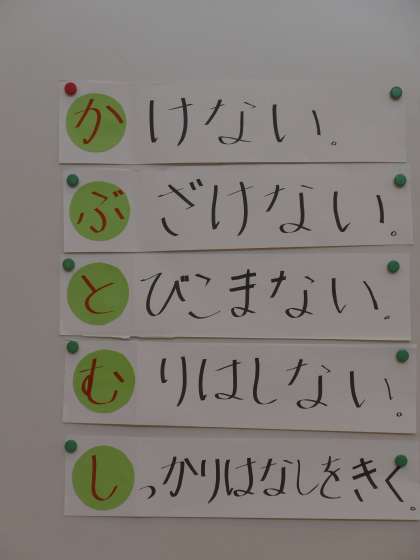 かけない。
ぶざけない。
とびこまない。
むりはしない。
しっかりはなしをきく。